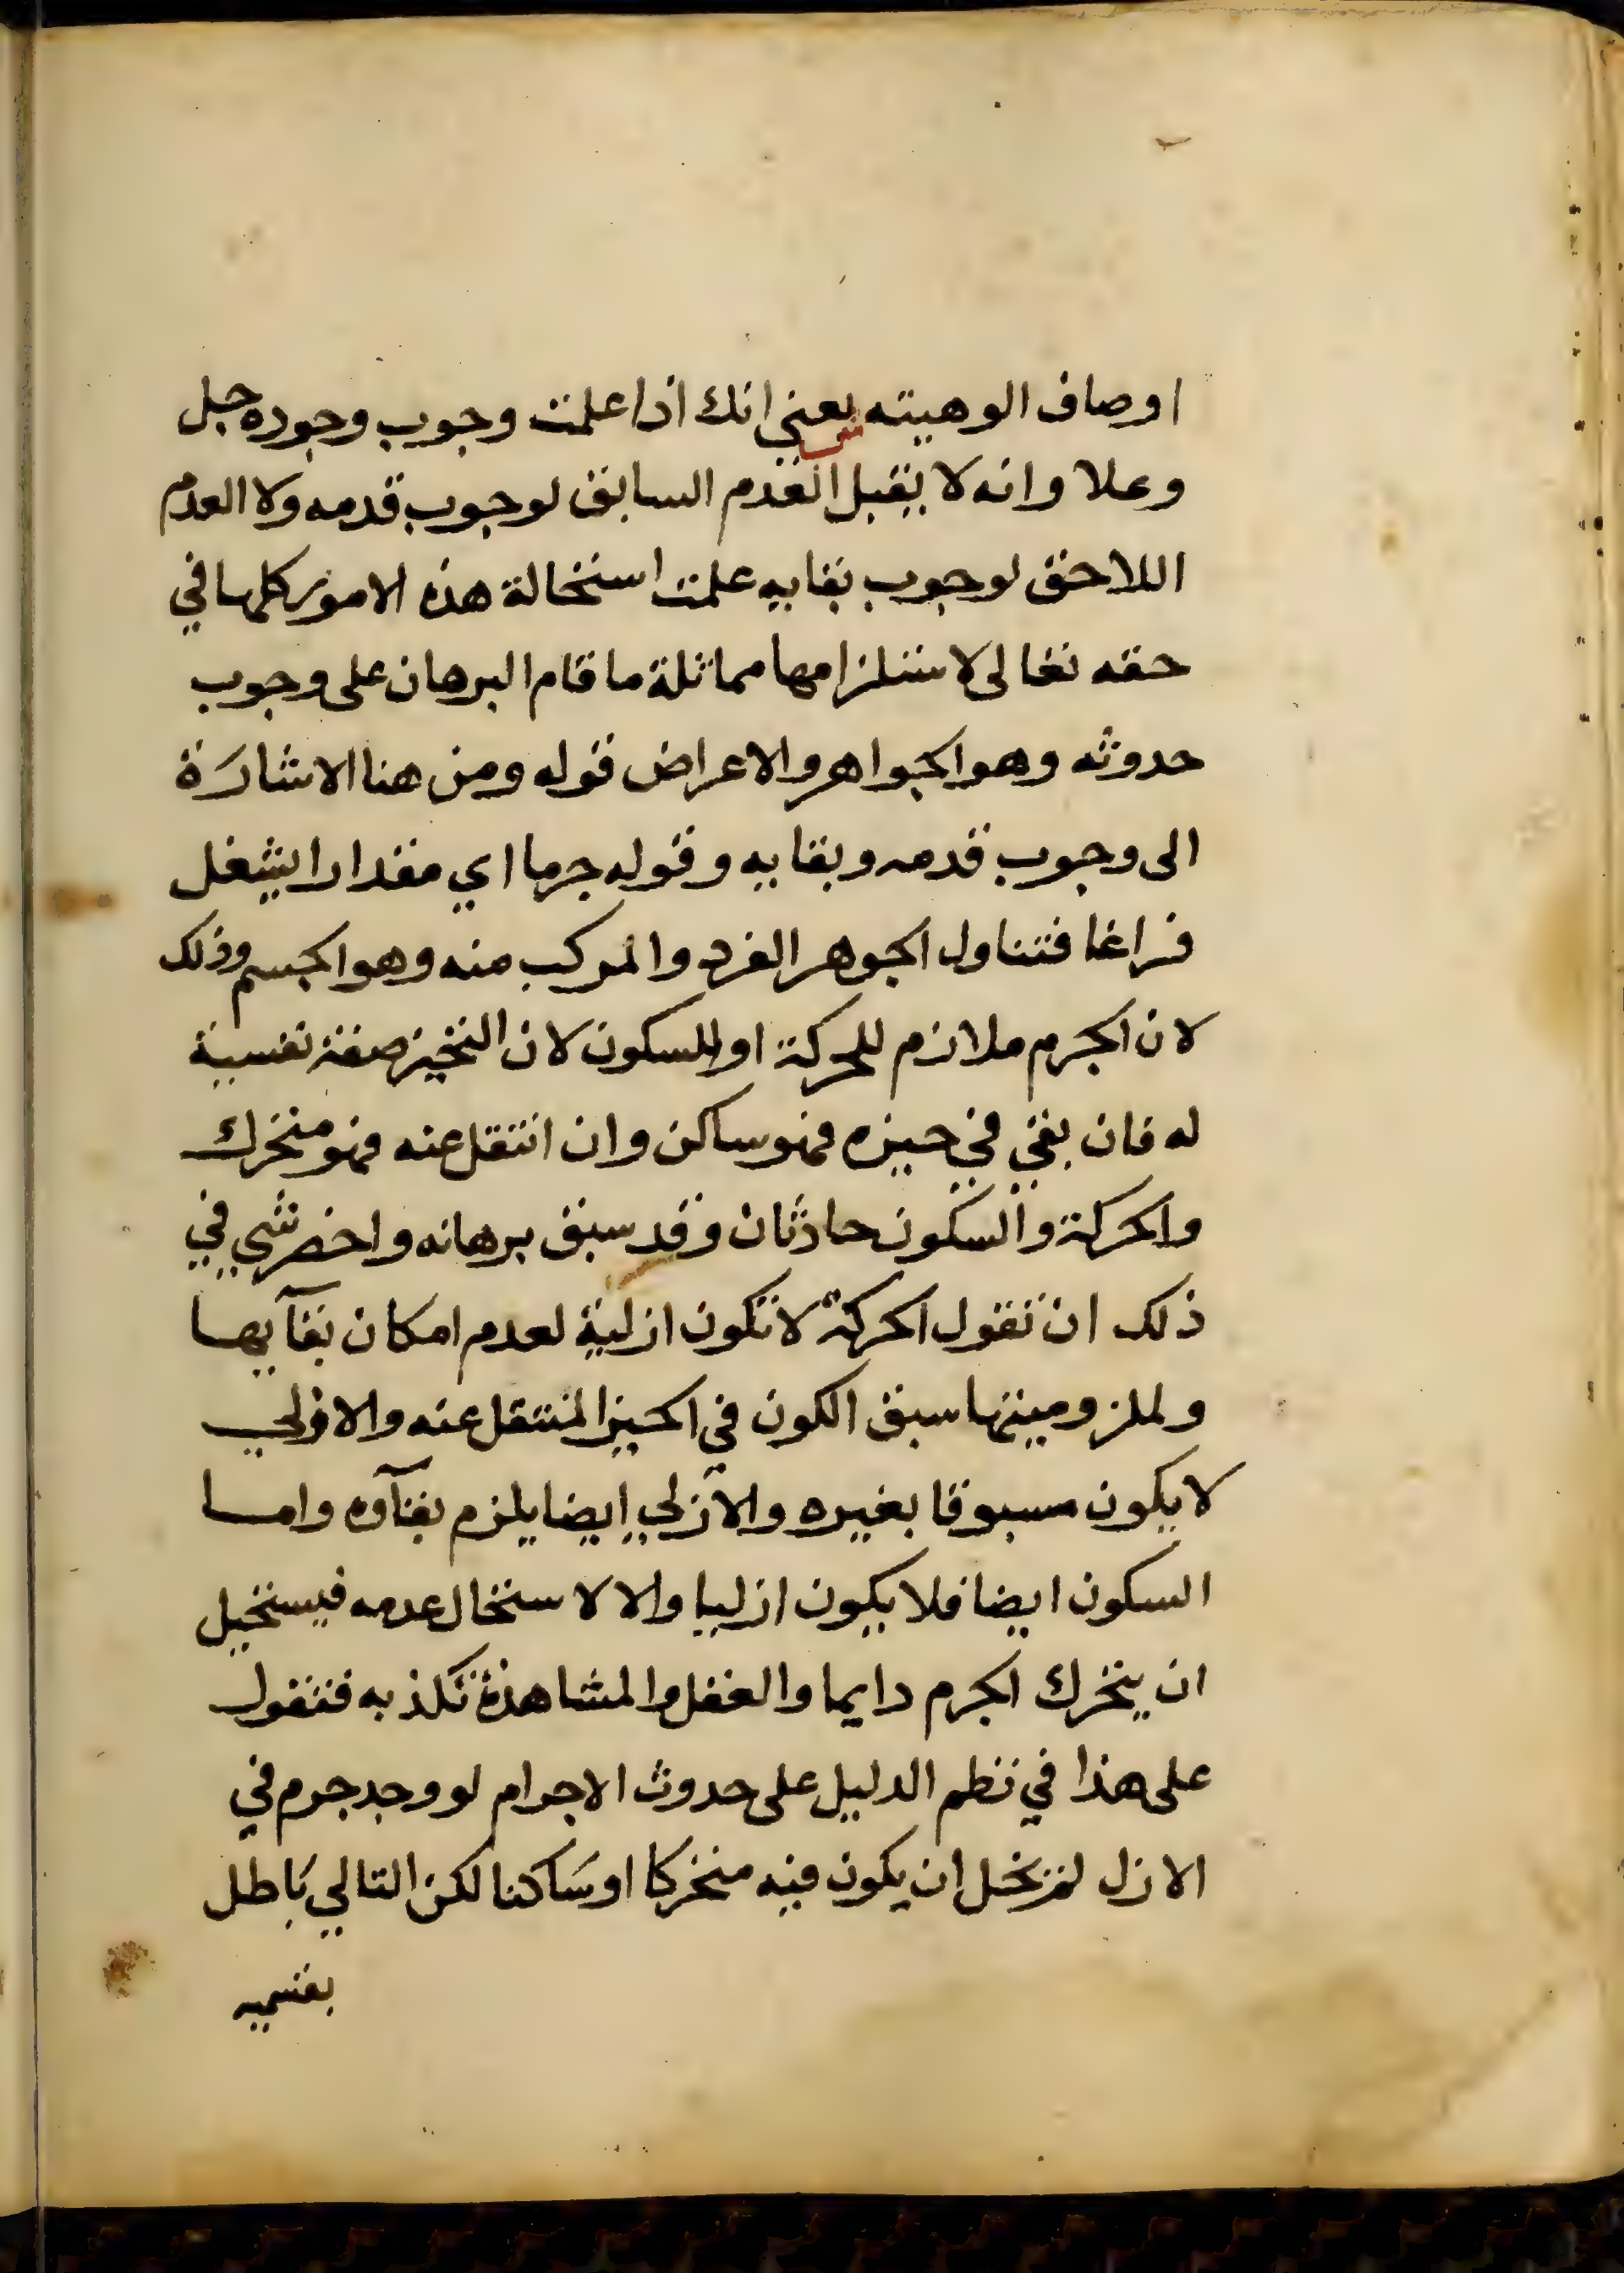 اوصاف الوهيته يعني انك اذا علمت وجوب وجوده جل
ش
وعلا وانه لا يقبل العدم السابق لوجوب قدمه ولا العدم
اللاحق لوجوب بقايه علمت استحالة هذه الامور كلها في
حقه تعالى لاستلزامها مماثلة ما قام البرهان على وجوب
حدوثه وهو الجواهر والاعراض قوله ومن هنا الاشارة
الى وجوب قدمه وبقايه وقوله جرما اي مقدارا يشغل
فراغا فتناول الجوهر الفرد والمركب منه وهو الجسم وذلك
لان الجرم ملازم للحركة او للسكون لان التحيز صفة نفسية
له فان بقي في حيزه فهو ساكن وان انتقل عنه فهو متحرك
والحركة والسكون حادثان وقد سبق برهانه واخصر شي في
ذلك ان نقول الحركة لا تكون ازلية لعدم امكان بقآيها
ولملزوميتها سبق الكون في الحيز المنتقل عنه والازلي
لا يكون مسبوقا بغيره والازلي ايضا يلزم بقآوه واما
السكون ايضا فلا يكون ازليا والا لاستحال عدمه فيستحيل
ان يتحرك الجرم دايما والعقل والمشاهدة تكذبه فتقول
على هذا في نظم الدليل على حدوث الاجرام لو وجد جرم في
الازل لم يخل ان يكون فيه متحركا او ساكنا لكن التالي باطل
بقسميه